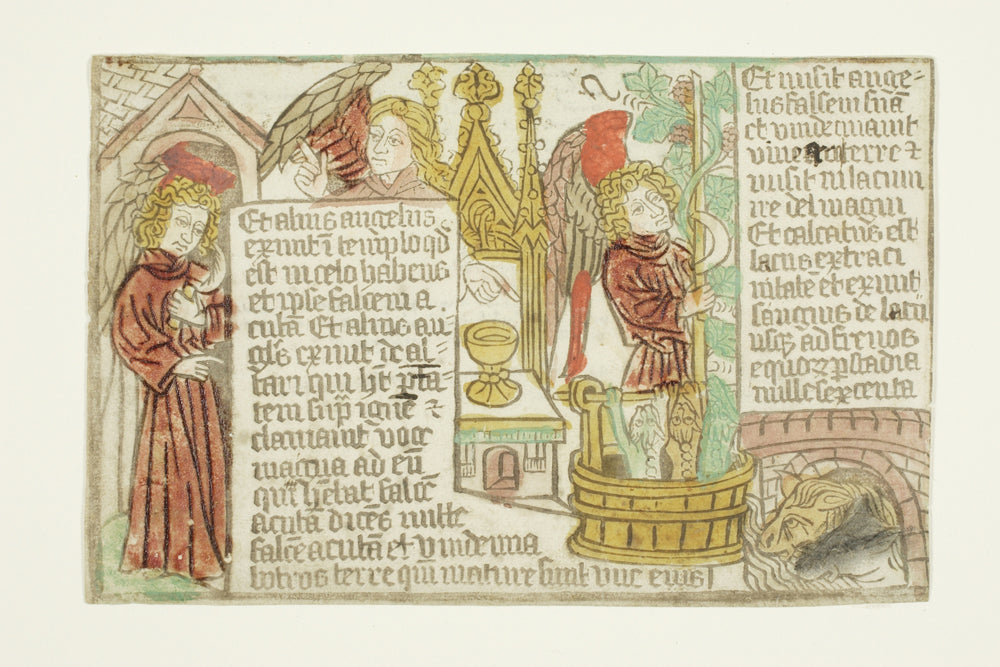 Et alius angelus
exiuit ī templo qd̄
est in celo habens
et ipse falcem a
cutā Et alius an
gl̄s exiuit de al
tari qui h̄t p̄tā
tem sup̄ ignē ⁊
clamauit voce
magna ad eū
qui h̄ebat falcē
acutā dicēs mitte
falcē acutā et vindemia
botros terre qm̄ mature sunt vue eius
Et misit ange-
lus falcem suā
et vindemauit
terre ⁊
misit in lacum
ire dei magni
Et calcatus est
lacus extra ci
uitatē et exiuit
sanguis de lacu
usqꝫ ad frenos
equoꝝ p stadia
mille sexcenta